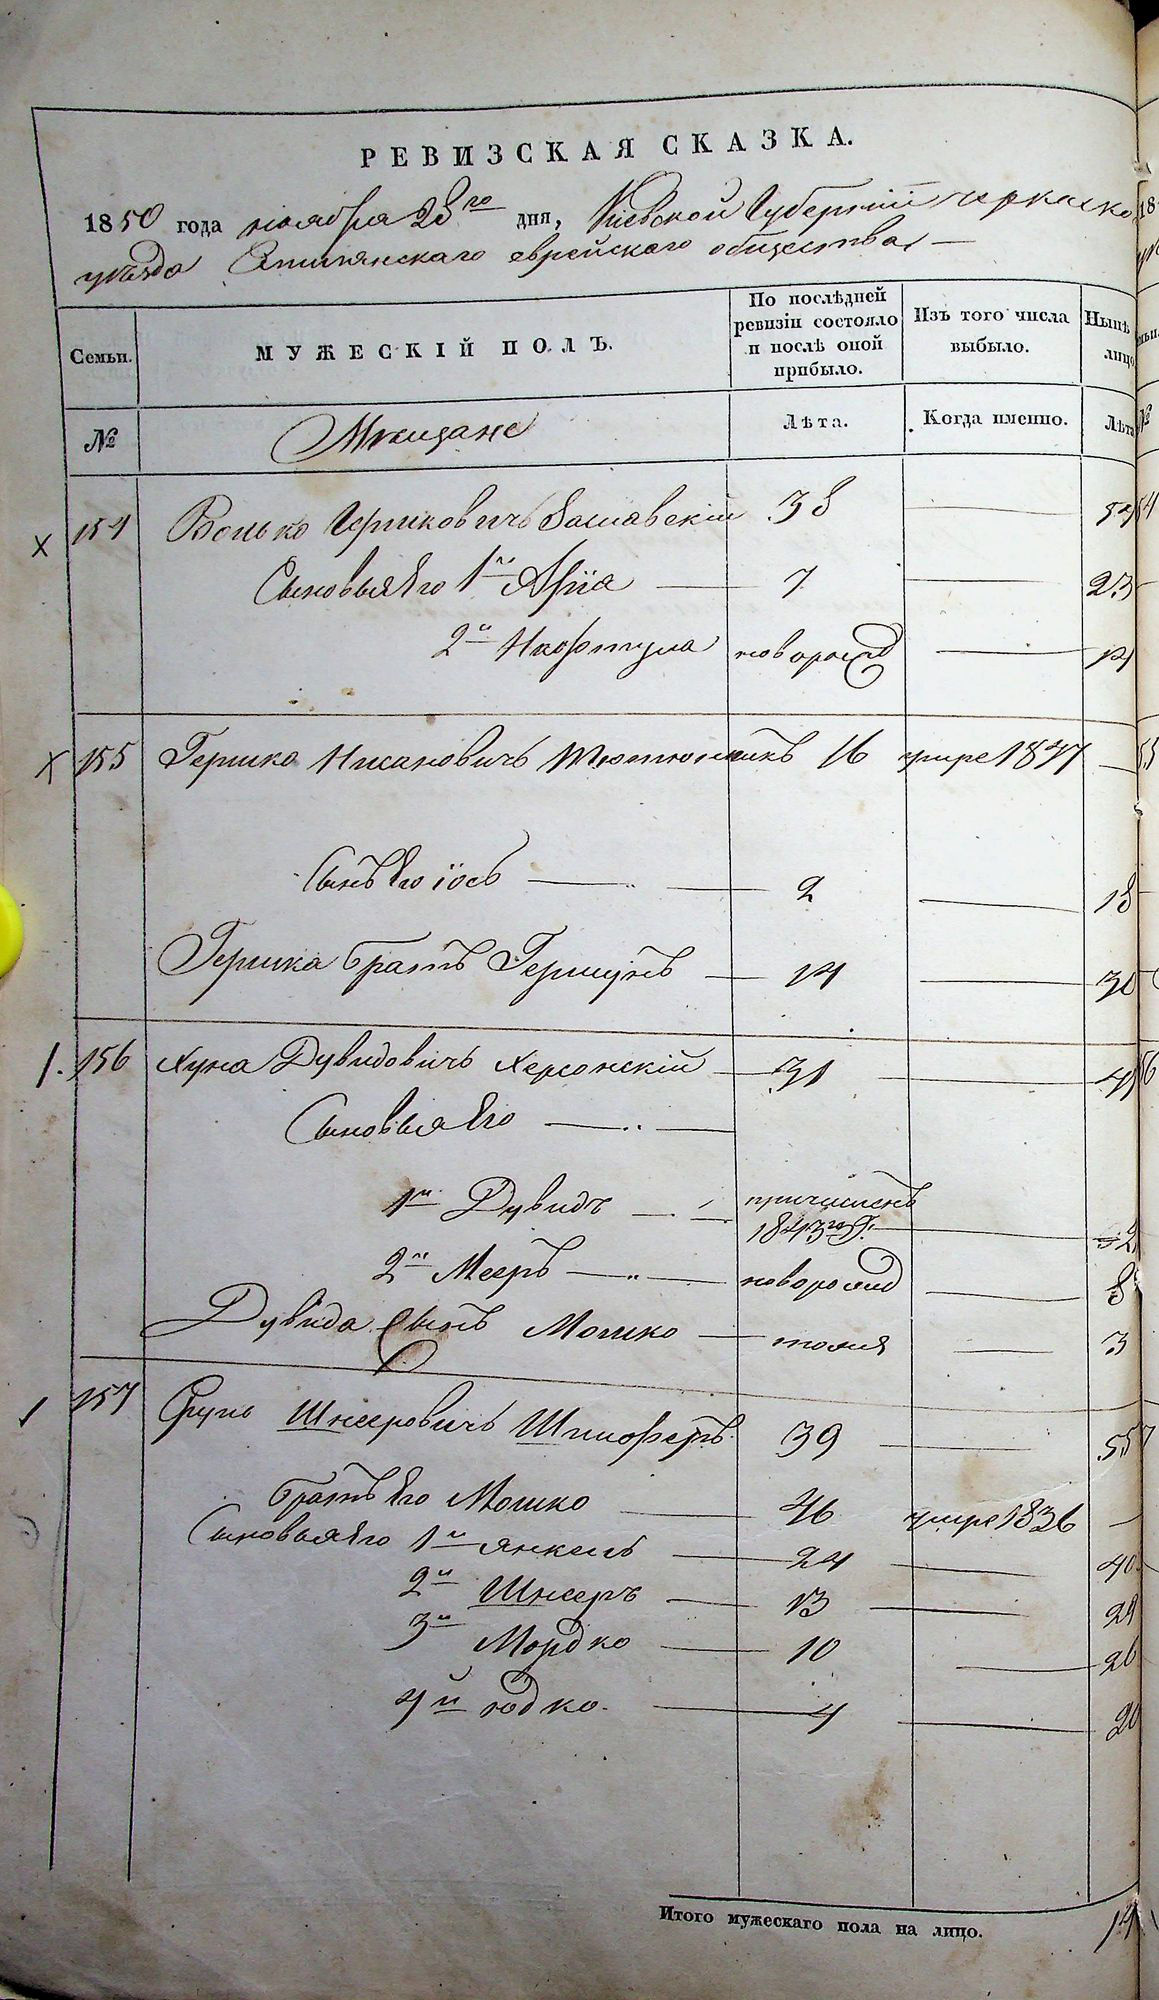 РЕВИЗСКАЯ СКАЗКА.
1850 года ноября 28го дня, Кіевской Губерніи черкаско
уѣзда еврейскаго общества
Семьи.
МУЖЕСКІЙ ПОЛЪ.
По послѣдней ревизіи состояло и послѣ оной прибыло.
Изъ того числа выбыло.
Нынѣ лицо
№
Мѣщане
Лѣта.
Когда именно.
Лѣта
154 Волько Гершковичъ 38 — 54
Сыновья Его 1й Арiя — 7 — 23
2й Нафтула новорожд — 14
155 Гершко Нисановичъ Тютюникъ 16 умре 1847 —
Сынъ Его іось — 2 — 18
Гершка братъ Гершунъ — 14 — 30
1. 156 Хуна Дувидовичъ Херсонскій — 31 — 4
Сыновья Его —
1й Дувидъ — причисленъ
1843го Г. — 2
2й Мееръ — новорожд — 8
Дувида Сынъ Мошко — тоже — 3
157 Сруль Шнееровичъ 39 — 55
братъ Его Мошко — 46 умре 1836 —
Сыновья Его 1й янкель — 24 — 40
2й Шнееръ — 13 — 29
3й Мордко — 10 — 26
4й юдко. — 4 — 20
Итого мужескаго пола на лицо. 14